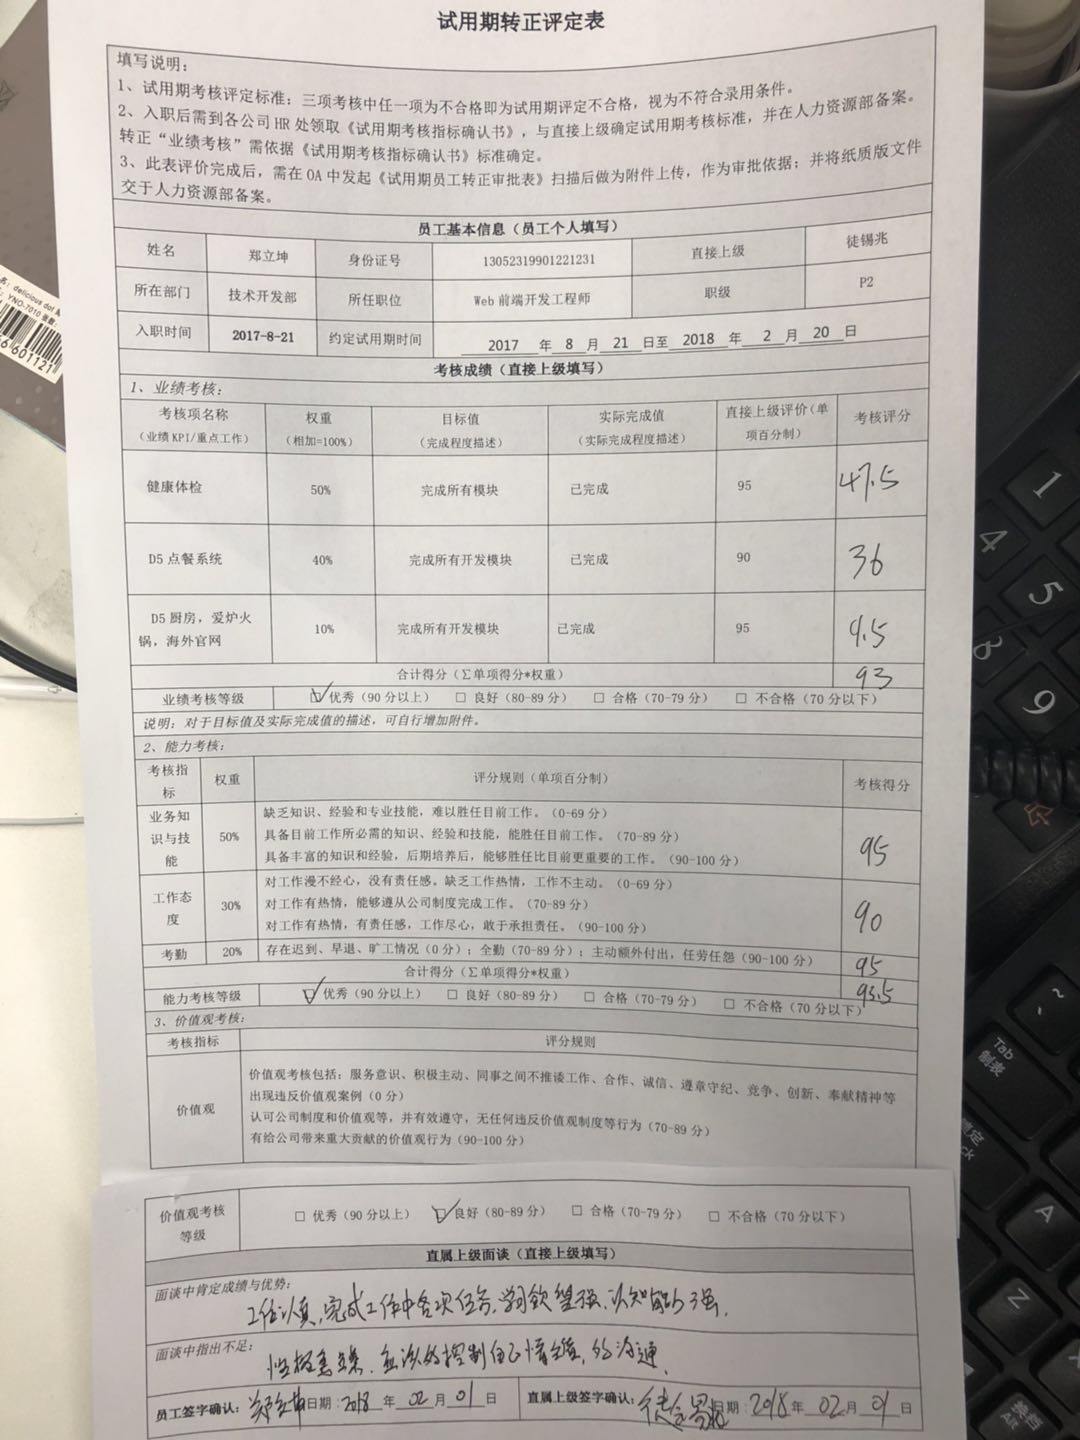 试用期转正评定表
填写说明：
1、试用期考核评定标准：三项考核中任一项为不合格即为试用期评定不合格，视为不符合录用条件。
2、入职后需到各公司 HR 处领取《试用期考核指标确认书》，与直接上级确定试用期考核标准，并在人力资源部备案。
转正“业绩考核”需依据《试用期考核指标确认书》标准确定。
3、此表评价完成后，需在 OA 中发起《试用期员工转正审批表》扫描后做为附件上传，作为审批依据；并将纸质版文件
交于人力资源部备案。
员工基本信息（员工个人填写）
姓名 郑立坤 身份证号 13052319901221231 直接上级 徒锡兆
所在部门 技术开发部 所任职位 Web 前端开发工程师 职级 P2
入职时间 2017-8-21 约定试用期时间 2017 年 8 月 21 日至 2018 年 2 月 20 日
考核成绩（直接上级填写）
1、业绩考核：
考核项名称 权重 目标值 实际完成值 直接上级评价（单 考核评分
（业绩 KPI/重点工作） （相加=100%） （完成程度描述） （实际完成程度描述） 项百分制）
健康体检 50% 完成所有模块 已完成 95 47.5
D5 点餐系统 40% 完成所有开发模块 已完成 90 36
D5 厨房，爱炉火
锅，海外官网 10% 完成所有开发模块 已完成 95 9.5
合计得分（Σ单项得分*权重） 93
业绩考核等级 ☑ 优秀（90 分以上） □ 良好（80-89 分） □ 合格（70-79 分） □ 不合格（70 分以下）
说明：对于目标值及实际完成值的描述，可自行增加附件。
2、能力考核：
考核指
标 权重 评分规则（单项百分制） 考核得分
业务知
识与技
能 50% 缺乏知识、经验和专业技能，难以胜任目前工作。（0-69 分）
具备目前工作所必需的知识、经验和技能，能胜任目前工作。（70-89 分）
具备丰富的知识和经验，后期培养后，能够胜任比目前更重要的工作。（90-100 分） 95
工作态
度 30% 对工作漫不经心，没有责任感。缺乏工作热情，工作不主动。（0-69 分）
对工作有热情，能够遵从公司制度完成工作。（70-89 分）
对工作有热情，有责任感，工作尽心，敢于承担责任。（90-100 分） 90
考勤 20% 存在迟到、早退、旷工情况（0 分）；全勤（70-89 分）；主动额外付出，任劳任怨（90-100 分） 95
合计得分（Σ单项得分*权重） 93.5
能力考核等级 ☑ 优秀（90 分以上） □ 良好（80-89 分） □ 合格（70-79 分） □ 不合格（70 分以下）
3、价值观考核：
考核指标 评分规则
价值观 价值观考核包括：服务意识、积极主动、同事之间不推诿工作、合作、诚信、遵章守纪、竞争、创新、奉献精神等
出现违反价值观案例（0 分）
认可公司制度和价值观等，并有效遵守，无任何违反价值观制度等行为（70-89 分）
有给公司带来重大贡献的价值观行为（90-100 分）
价值观考核
等级 □ 优秀（90 分以上） ☑ 良好（80-89 分） □ 合格（70-79 分） □ 不合格（70 分以下）
直属上级面谈（直接上级填写）
面谈中肯定成绩与优势：
工作认真，完成工作中各项任务，学习欲望强，认知能力强，
面谈中指出不足：
性格急躁，控制自己情绪，沟通，
员工签字确认：郑立坤 日期：2018 年 02 月 01 日 直属上级签字确认：徒锡兆 日期：2018 年 02 月 01 日
delicious dot
YNO-7010
6 601121
1
4
5
9
Tab
制表
A
Z
换挡
Alt